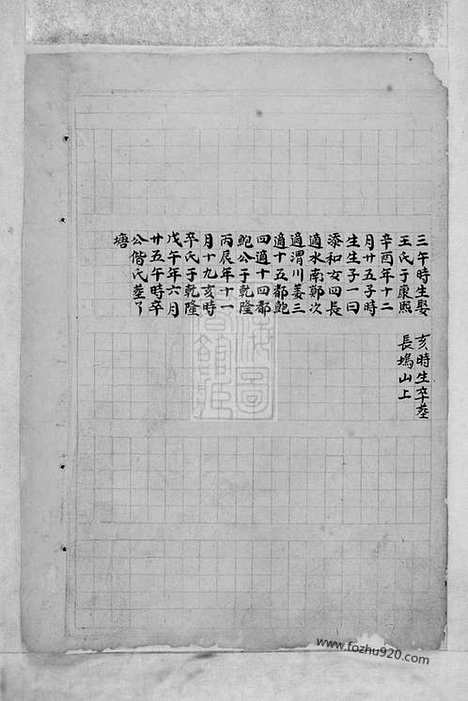 三午時生娶
王氏于康熙
辛酉年十二
月廿五子時
生生子一曰
添和女四長
適水南鄭次
適渭川姜三
適十五都鮑
四適十四都
鮑公于乾隆
丙辰年十一
月十九亥時
卒氏于乾隆
戊午年六月
廿五午時卒
公偕氏塟丫
塘
亥時生卒塟
長塢山上
www.fozhu920.com